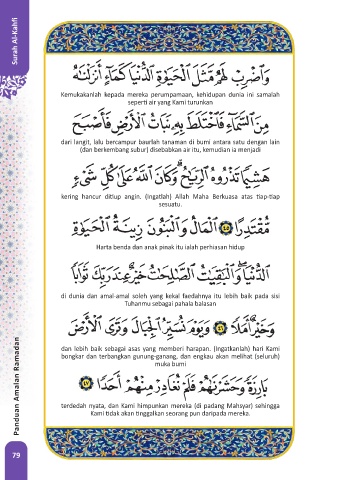 Surah Al-Kahfi
وَٱضْرِبْ لَهُم مَّثَلَ ٱلْحَيَوٰةِ ٱلدُّنْيَا كَمَآءٍ أَنزَلْنَٰهُ
Kemukakanlah kepada mereka perumpamaan, kehidupan dunia ini samalah
seperti air yang Kami turunkan
مِنَ ٱلسَّمَآءِ فَٱخْتَلَطَ بِهِۦ نَبَاتُ ٱلْأَرْضِ فَأَصْبَحَ
dari langit, lalu bercampur baurlah tanaman di bumi antara satu dengan lain
(dan berkembang subur) disebabkan air itu, kemudian ia menjadi
هَشِيمًا تَذْرُوهُ ٱلرِّيَٰحُ ۗ وَكَانَ ٱللَّهُ عَلَىٰ كُلِّ شَىْءٍ
kering hancur ditiup angin. (Ingatlah) Allah Maha Berkuasa atas tiap-tiap
sesuatu.
مُّقْتَدِرًا ٤٥ ٱلْمَالُ وَٱلْبَنُونَ زِينَةُ ٱلْحَيَوٰةِ
Harta benda dan anak pinak itu ialah perhiasan hidup
ٱلدُّنْيَا ۖ وَٱلْبَٰقِيَٰتُ ٱلصَّٰلِحَٰتُ خَيْرٌ عِندَ رَبِّكَ ثَوَابًا
di dunia dan amal-amal soleh yang kekal faedahnya itu lebih baik pada sisi
Tuhanmu sebagai pahala balasan
وَخَيْرٌ أَمَلًا ٤٦ وَيَوْمَ نُسَيِّرُ ٱلْجِبَالَ وَتَرَى ٱلْأَرْضَ
dan lebih baik sebagai asas yang memberi harapan. (Ingatkanlah) hari Kami
bongkar dan terbangkan gunung-ganang, dan engkau akan melihat (seluruh)
muka bumi
بَارِزَةً وَحَشَرْنَٰهُمْ فَلَمْ نُغَادِرْ مِنْهُمْ أَحَدًا ٤٧
terdedah nyata, dan Kami himpunkan mereka (di padang Mahsyar) sehingga
Kami tidak akan tinggalkan seorang pun daripada mereka.
Panduan Amalan Ramadan
79